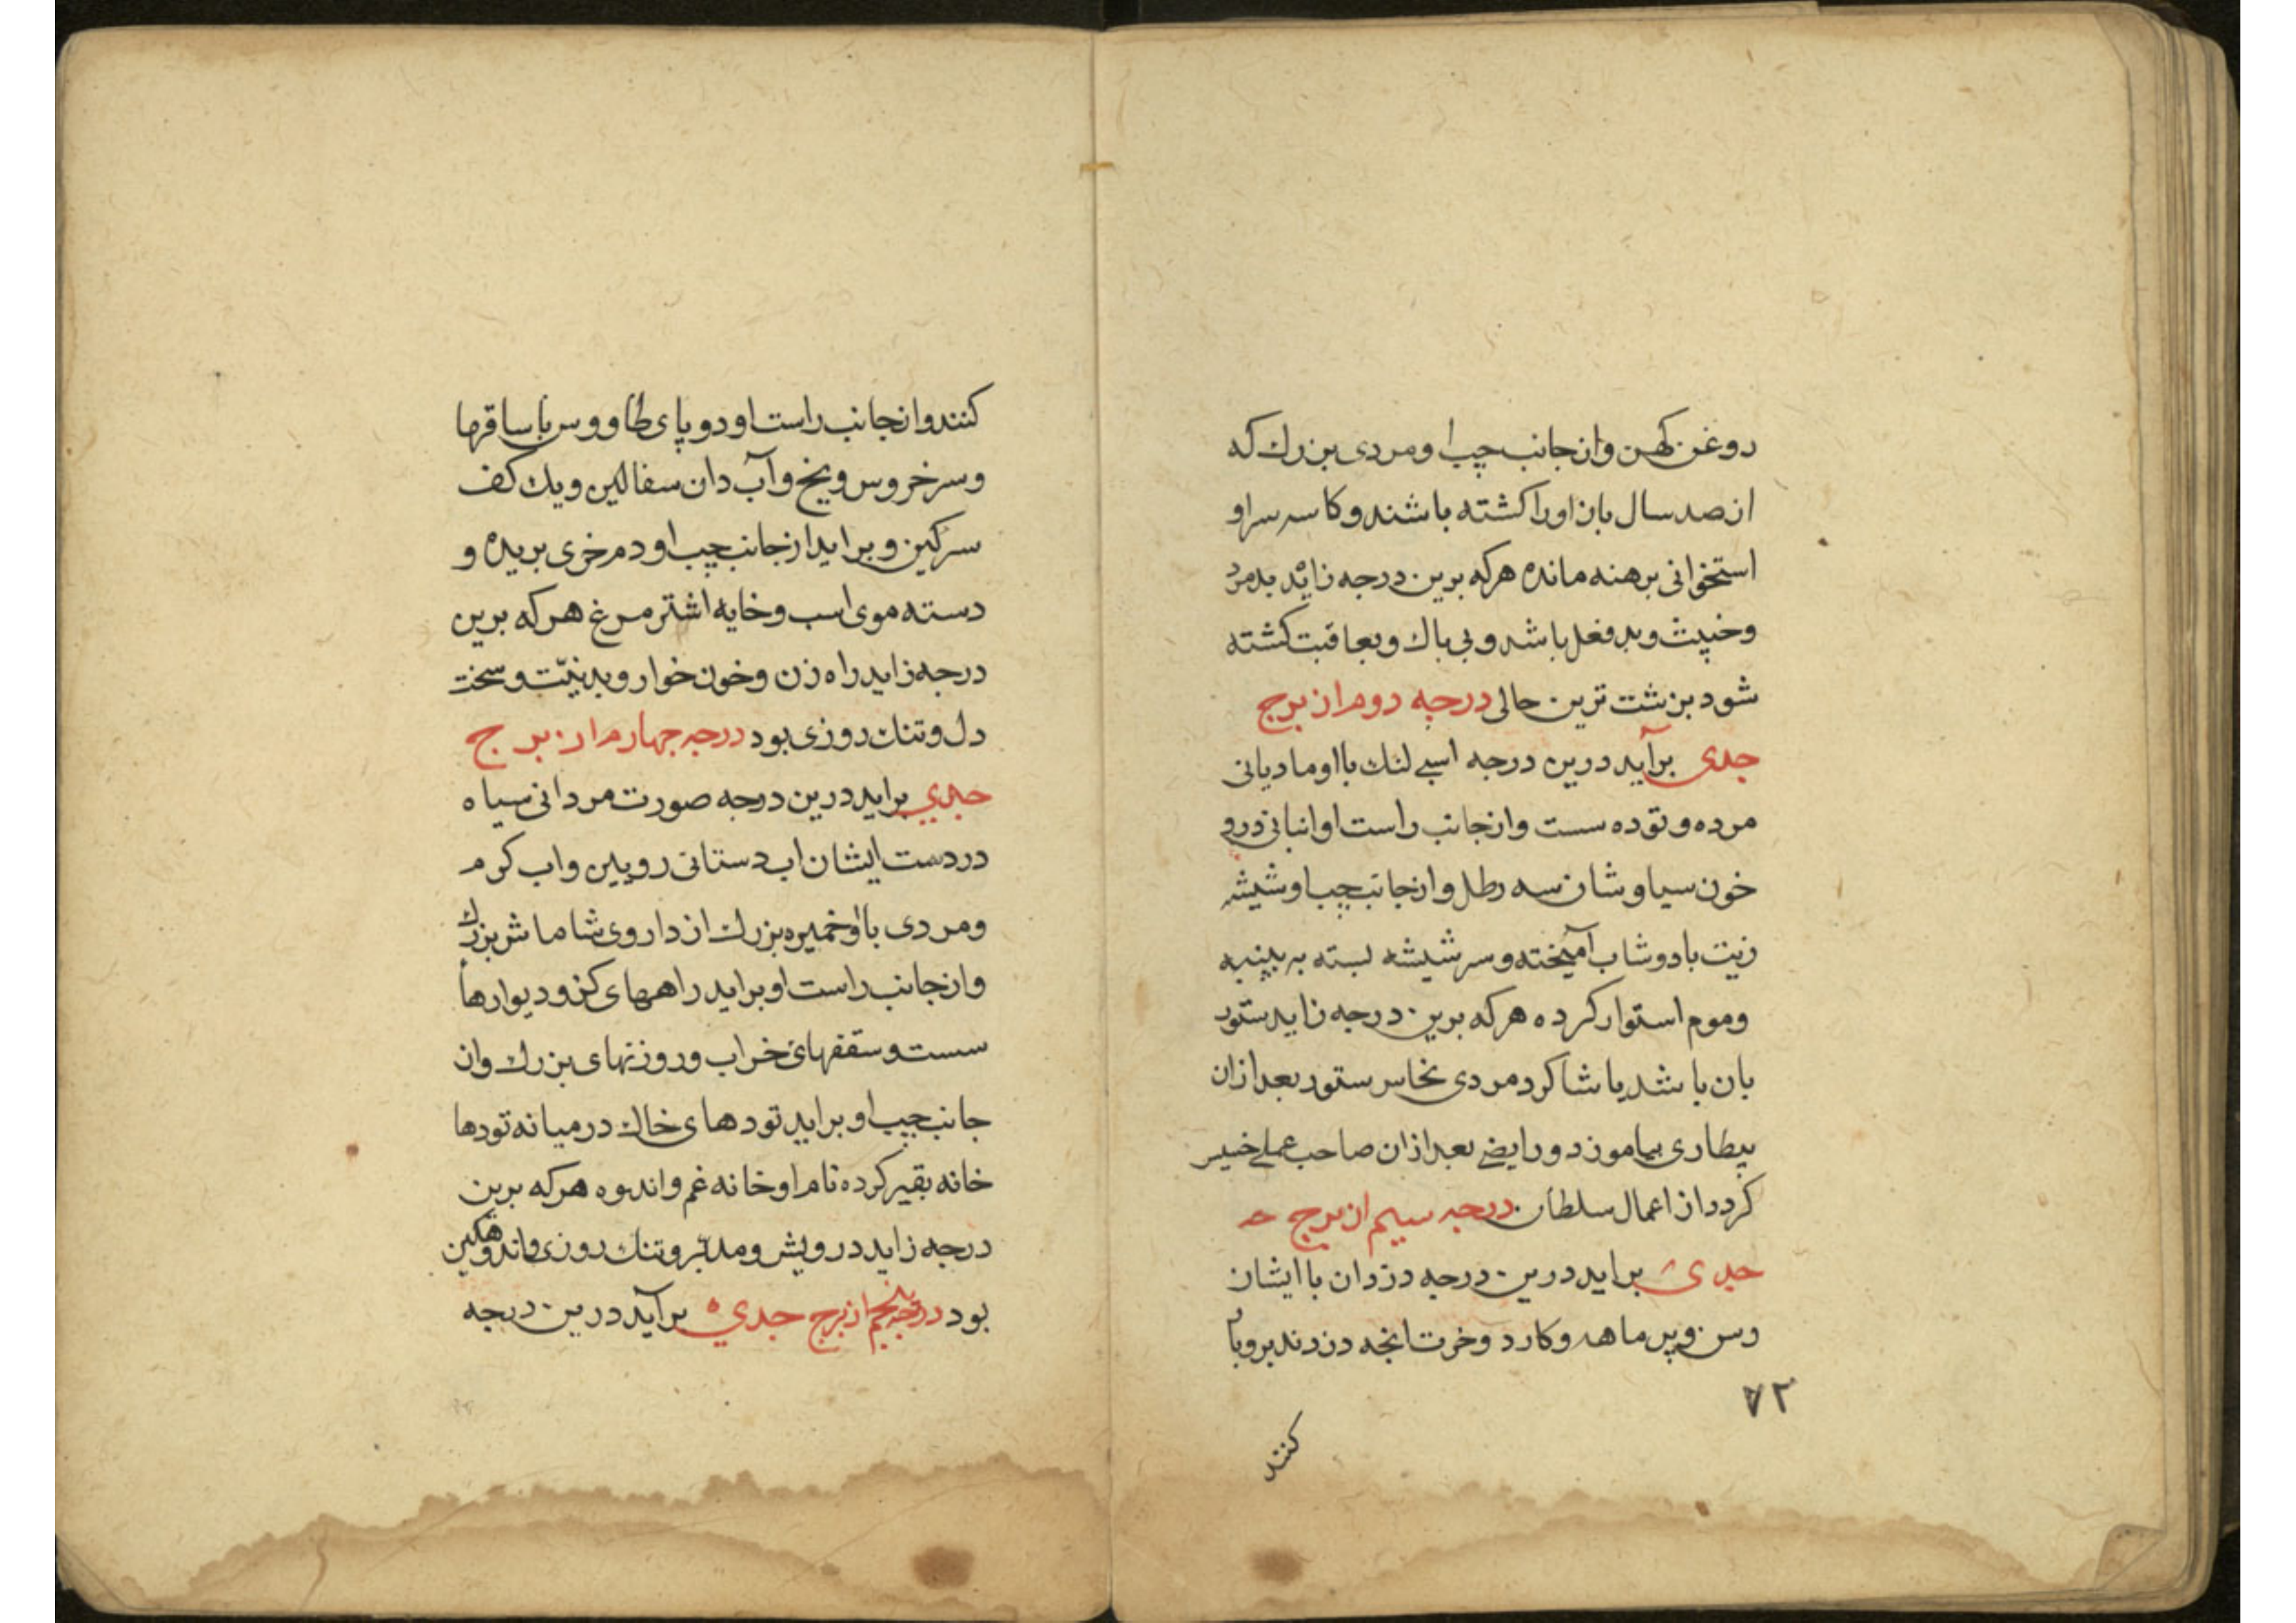 روغن کهن وازجانب چپ او مردی بزرك که
ازصد سال بازاورا کشته باشند وکاسه سراو
استخوانی برهنه مانده هرکه برین درجه زاید بدمرد
وخبیث وبدفعل باشد وبی باك وبعاقبت کشته
شود بزشت ترین حالی درجه دوم از برج
جدی برآید درین درجه اسبی لنك بااومادیانی
مرده وتوده سست وازجانب راست اوانبانی درو
خون سیاوشان سه رطل وازجانب چپ اوشیشه
زیت بادوشاب آمیخته وسرشیشه بسته به پنبه
وموم استوارکرده هرکه برین درجه زاید ستور
بان باشد یا شاکرد مردی نخاس ستور بعدازان
بیطاری بیاموزد ورایضی بعدازان صاحب عملی خسیر
کردد از اعمال سلطان درجه سیم از برج
جدی براید درین درجه دزدان باایشان
رسن وپرماهه وکارد وخرت انچه دزدند بروبا
۷۲
کنند
کنند وازجانب راست او دوپای طاووس باساقها
وسرخروس ویخ وآب دان سفالین ویك کف
سرکین وبرایدازجانب چپ اودم خری بریده و
دسته موی اسب وخایه اشترمرغ هرکه برین
درجه زاید راه زن وخون خوار وبدنیّت وسخت
دل وتنك روزی بود درجه چهارم از برج
جدي براید درین درجه صورت مردانی سیاه
دردست ایشان اب دستانی رویین واب کرم
ومردی بااوخمیره بزرك ازداروی شاماش بزرك
وازجانب راست اوبراید راهمهای کژ ودیوارها
سست وسقفهای خراب وروزنهای بزرك واز
جانب چپ اوبراید تودهای خاك درمیانه تودها
خانه بقیرکرده نام اوخانه غم واندوه هرکه برین
درجه زاید درویش ومدبّر وتنك روزی واندوهکین
بود درجه پنجم ازبرج جدي برآید درین درجه